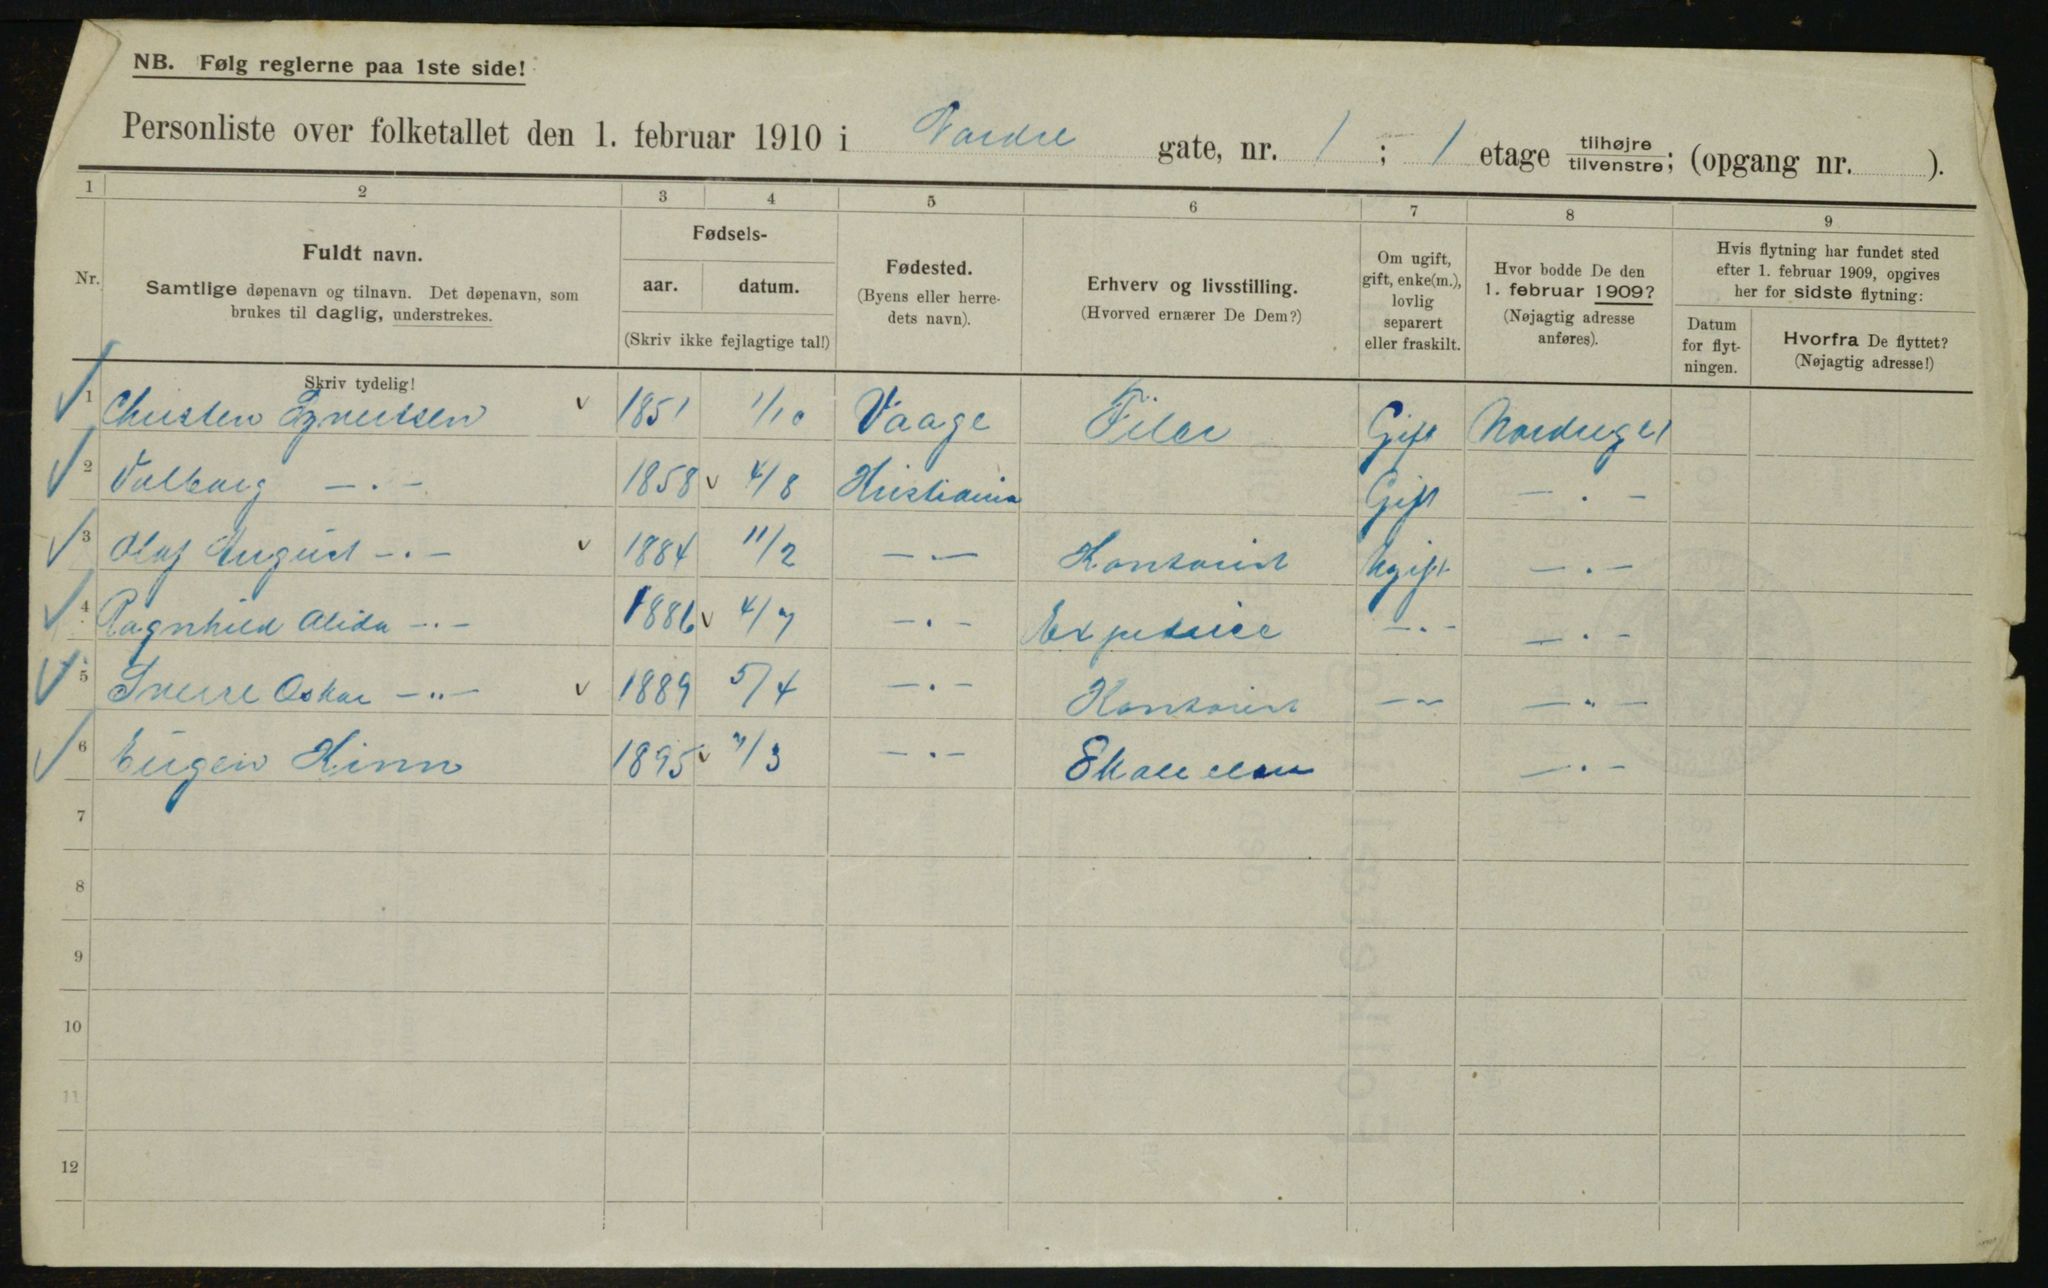 NB. Følg reglerne paa 1ste side!
Personliste over folketallet den 1. februar 1910 i Nordre gate, nr. 1 ; 1 etage tilhøjre tilvenstre; (opgang nr. ).
1 2 3 4 5 6 7 8 9
Nr.
Fuldt navn.
Samtlige døpenavn og tilnavn. Det døpenavn, som
brukes til daglig, understrekes.
Skriv tydelig!
Fødsels-
aar. datum.
(Skriv ikke fejlagtige tal!)
Fødested.
(Byens eller herre-
dets navn).
Erhverv og livsstilling.
(Hvorved ernærer De Dem?)
Om ugift,
gift, enke(m.),
lovlig
separert
eller fraskilt.
Hvor bodde De den
1. februar 1909?
(Nøjagtig adresse
anføres).
Hvis flytning har fundet sted
efter 1. februar 1909, opgives
her for sidste flytning:
Datum
for flyt-
ningen.
Hvorfra De flyttet?
(Nøjagtig adresse!)
1 Christen 1851 1/10 Vaage Filer Gift Nordregt 1
2 Valborg — · — 1858 4/8 Kristiania Gift — · —
3 Olaf August — · — 1884 11/2 — · — Kontorist Ugift — · —
4 Ragnhild Alida — · — 1886 4/7 — · — — · — — · —
5 Sverre Oskar — „ — 1889 5/4 — · — Kontorist — „ — — „ —
6 Eugen Kinn 1895 /3 — · — — · —
7
8
9
10
11
12